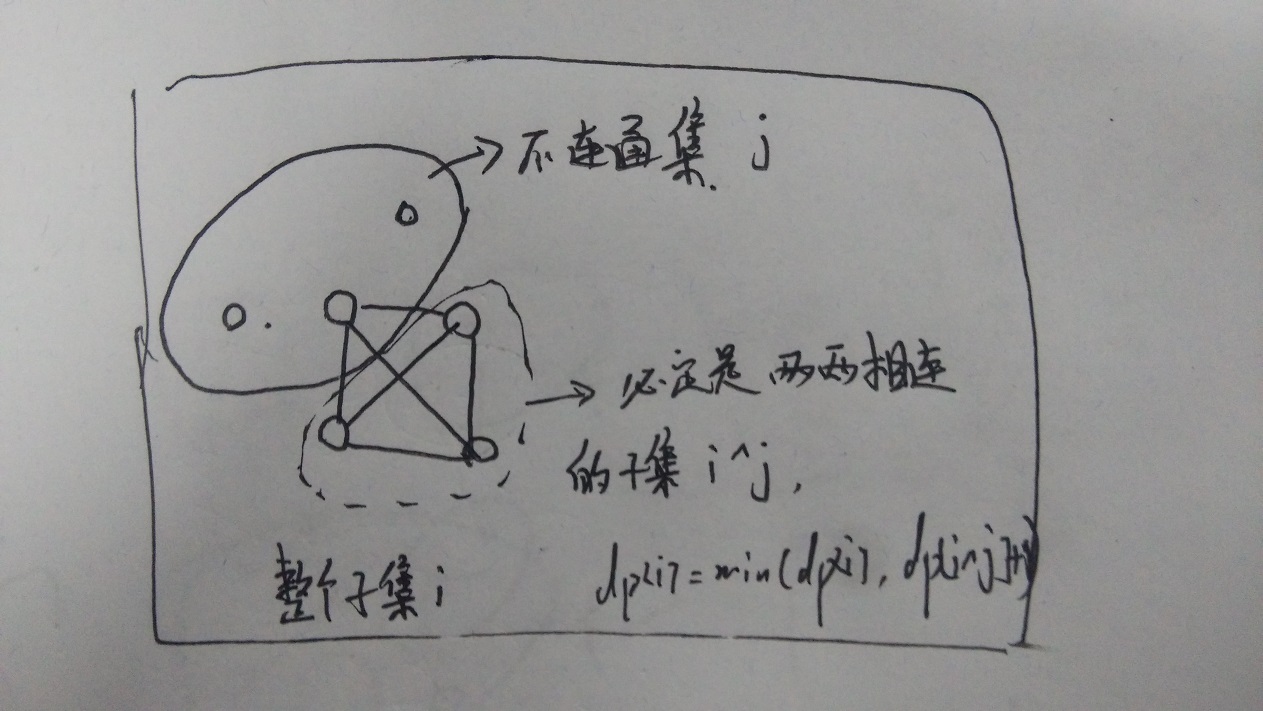 不连通集 j
必定是 两两相连
的子集 i^j,
整个子集 i
dp[i] = min(dp[i], dp[i^j]+1)